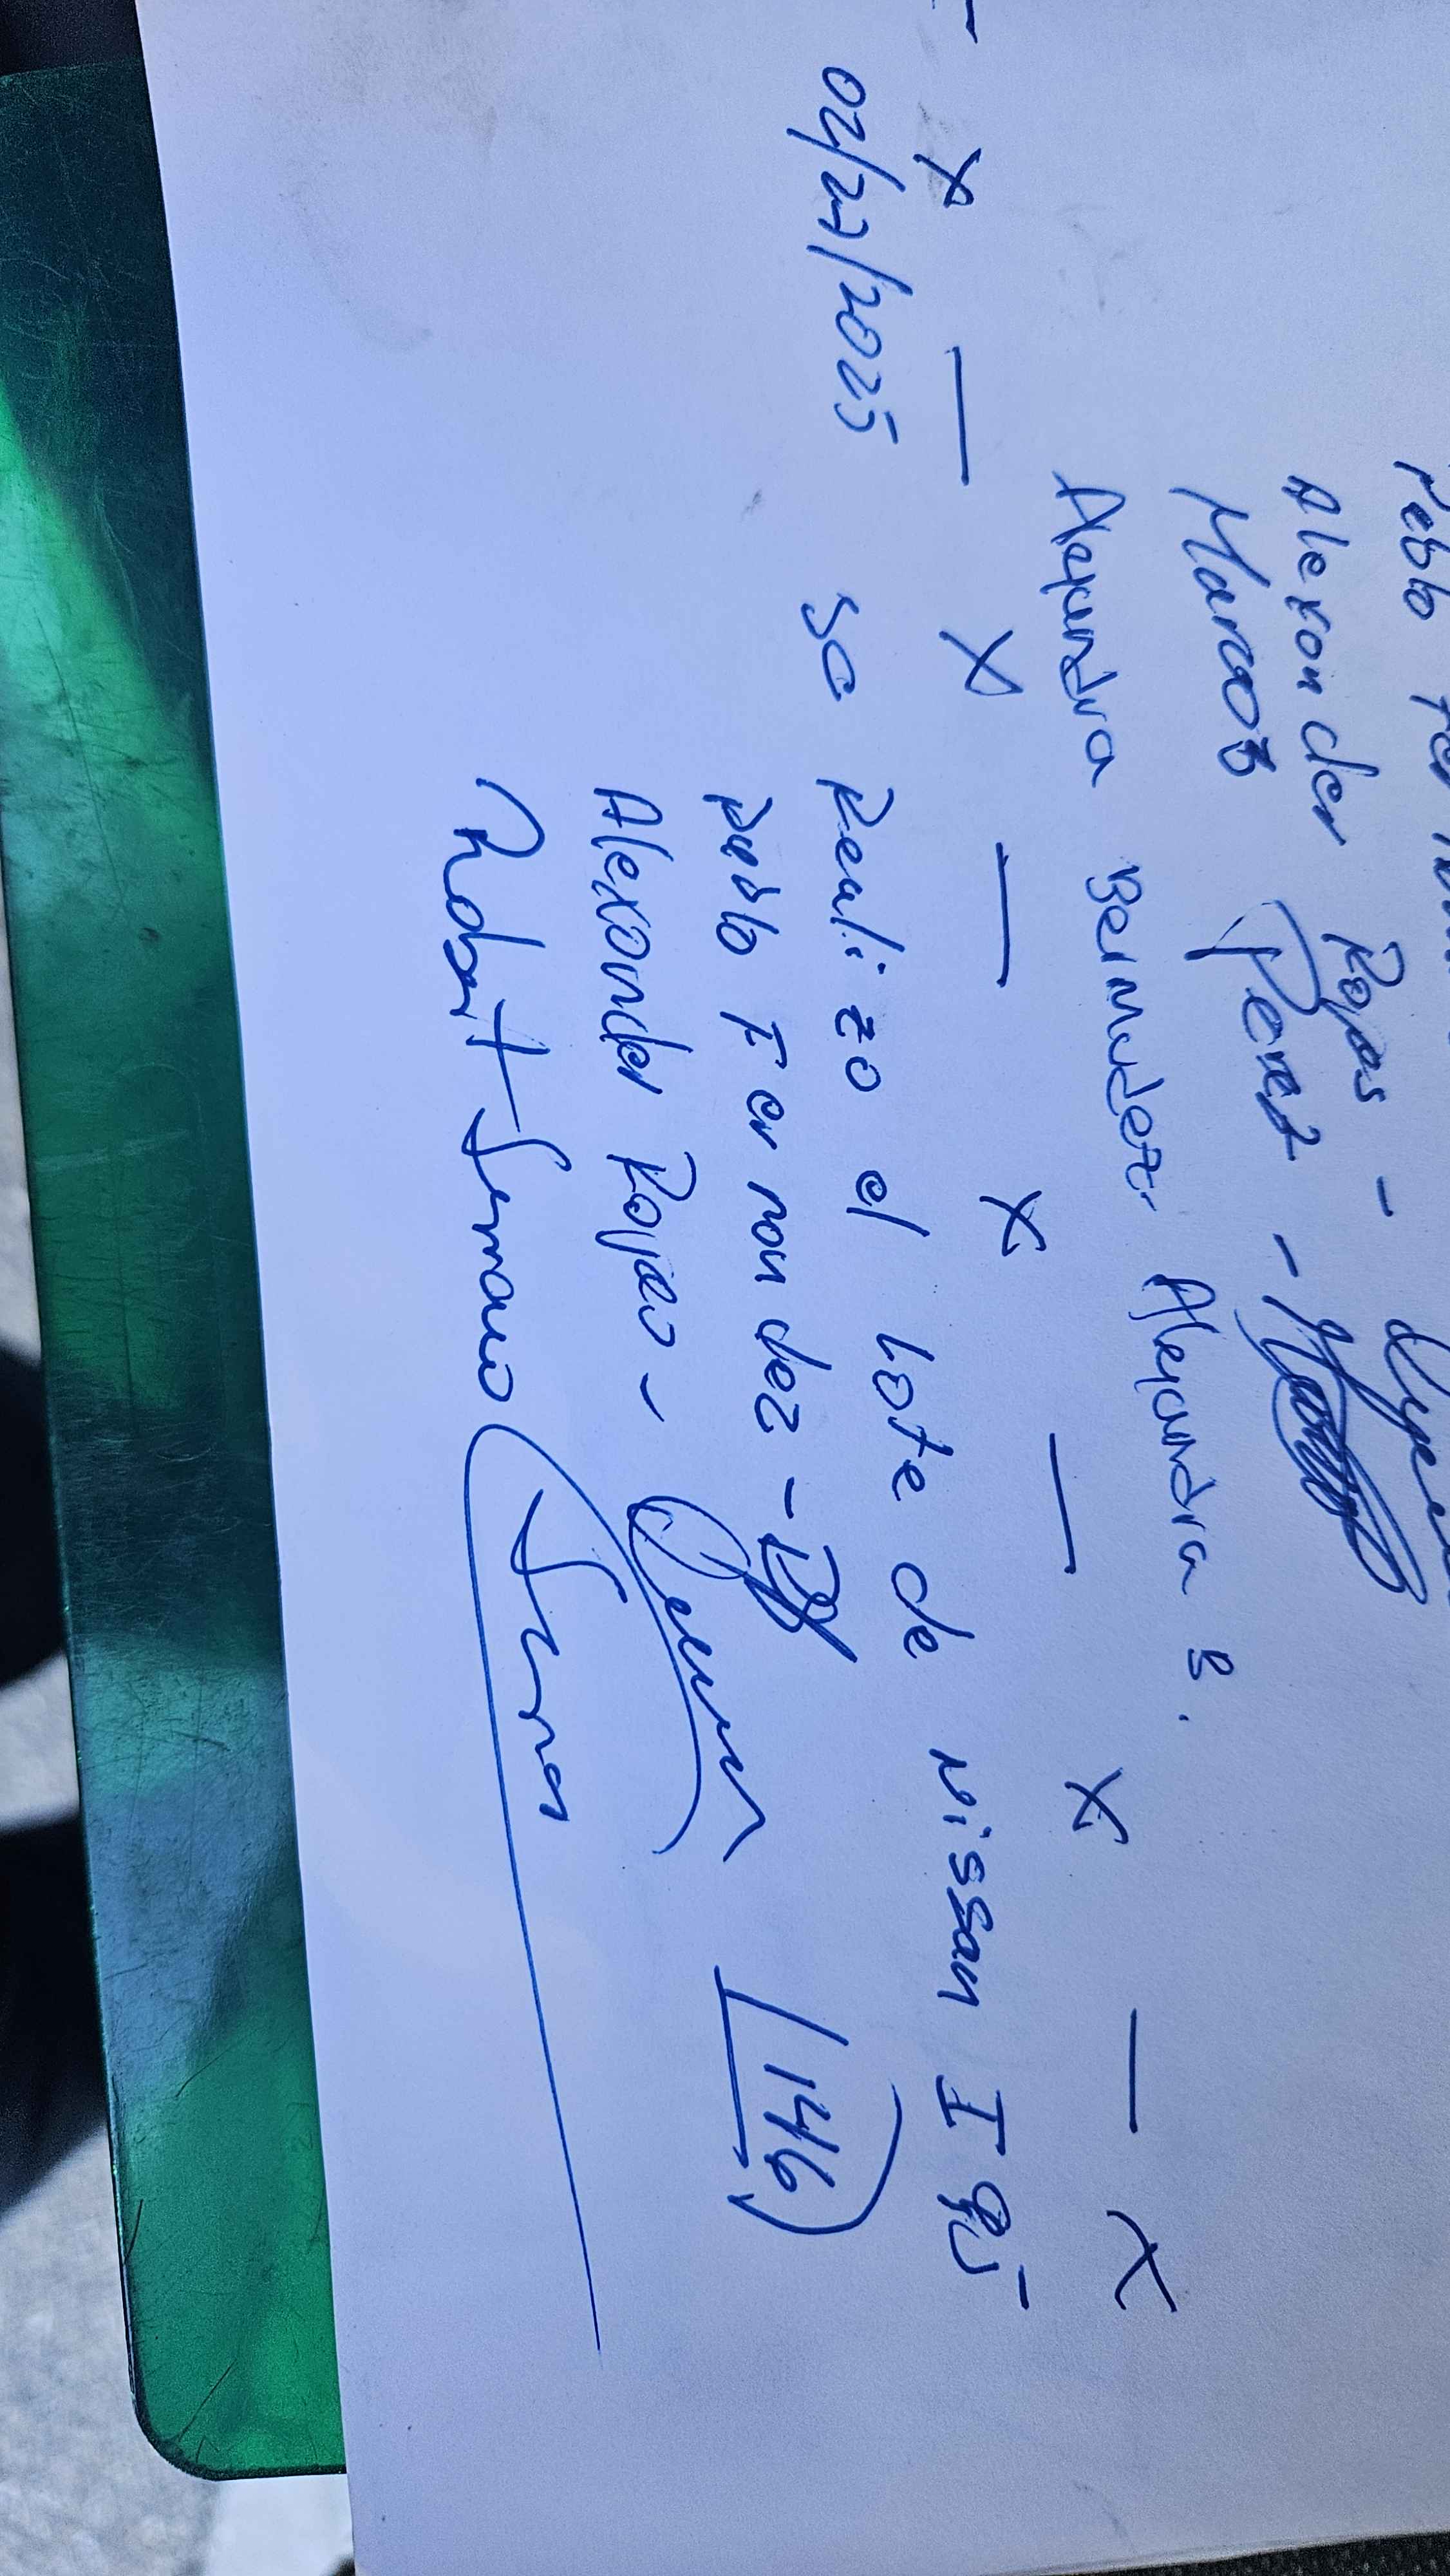 Alexander Rojas -
Marcos Perez -
Alexandra Bermudez Alexandra B.
x — x — x — x — x
02/27/2025 se Realizo el Lote de Nissan I 95 -
Pablo Fernandez -
Alexander Rojas - 146
Robert Serrano Serrano